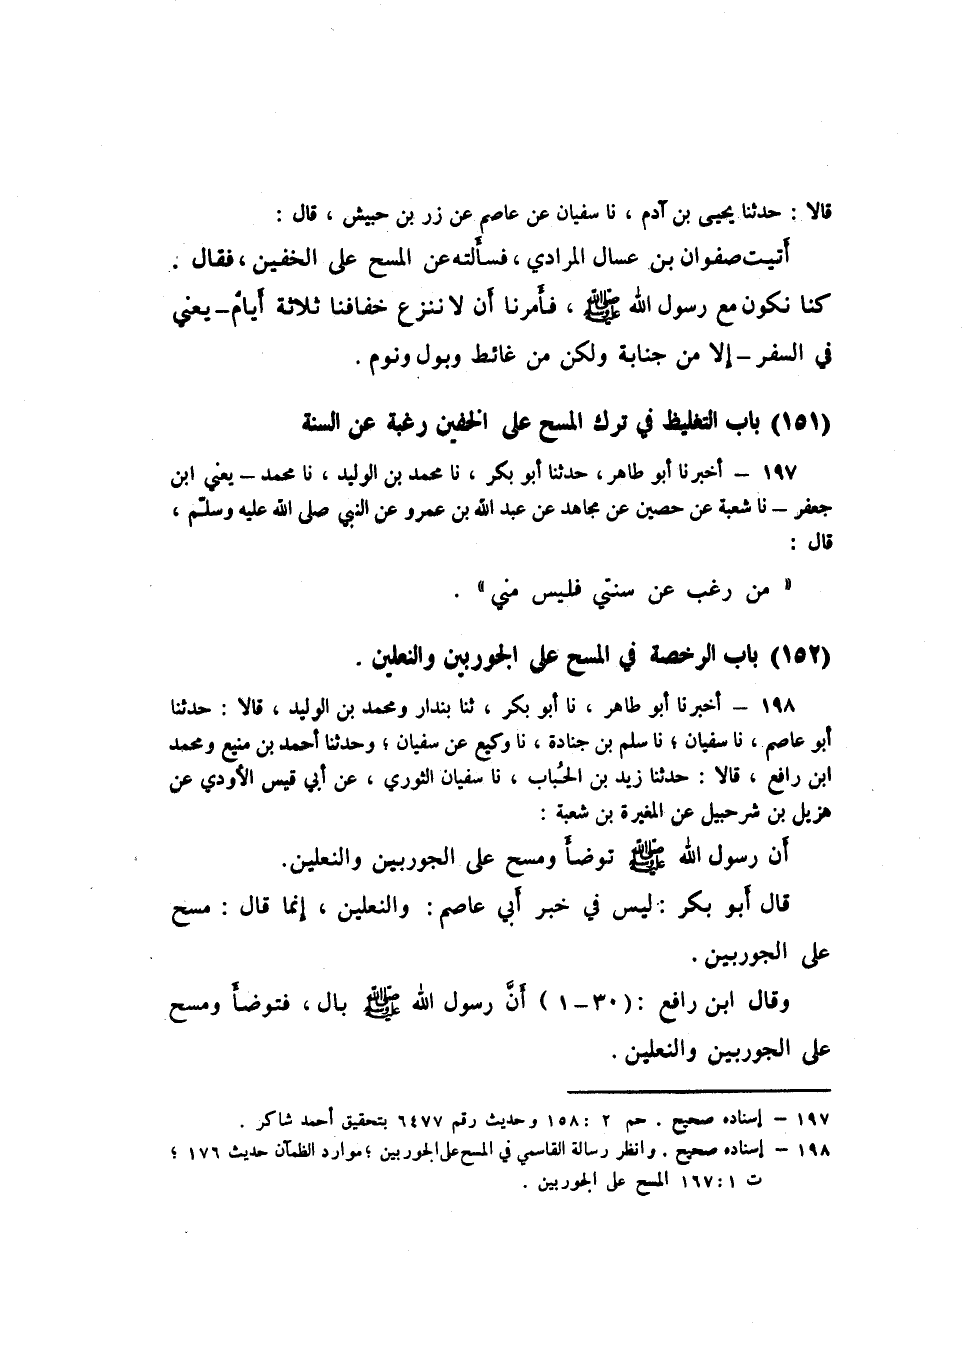 قالا : حدثنا يحيى بن آدم ، نا سفيان عن عاصم عن زر بن حبيش ، قال :
أتيت صفوان بن عسال المرادي ، فسألته عن المسح على الخفين ، فقال .
كنا نكون مع رسول الله ﷺ ، فأمرنا أن لا ننزع خفافنا ثلاثة أيام – يعني
في السفر – إلا من جنابة ولكن من غائط وبول ونوم .
(١٥١) باب التغليظ في ترك المسح على الخفين رغبة عن السنة
١٩٧ – أخبرنا أبو طاهر ، حدثنا أبو بكر ، نا محمد بن الوليد ، نا محمد – يعني ابن
جعفر – نا شعبة عن حصين عن مجاهد عن عبد الله بن عمرو عن النبي صلى الله عليه وسلّم ،
قال :
« من رغب عن سنتي فليس مني » .
(١٥٢) باب الرخصة في المسح على الجوربين والنعلين .
١٩٨ – أخبرنا أبو طاهر ، نا أبو بكر ، ثنا بندار ومحمد بن الوليد ، قالا : حدثنا
أبو عاصم ، نا سفيان ؛ نا سلم بن جنادة ، نا وكيع عن سفيان ؛ وحدثنا أحمد بن منيع ومحمد
ابن رافع ، قالا : حدثنا زيد بن الحُباب ، نا سفيان الثوري ، عن أبي قيس الأودي عن
هزيل بن شرحبيل عن المغيرة بن شعبة :
أن رسول الله ﷺ توضأ ومسح على الجوربين والنعلين.
قال أبو بكر : ليس في خبر أبي عاصم : والنعلين ، إنما قال : مسح
على الجوربين .
وقال ابن رافع : (٣٠–١ ) أنَّ رسول الله ﷺ بال ، فتوضأ ومسح
على الجوربين والنعلين .
١٩٧ – إسناده صحيح . حم ٢ : ١٥٨ وحديث رقم ٦٤٧٧ بتحقيق أحمد شاكر .
١٩٨ – إسناده صحيح . وانظر رسالة القاسمي في المسح على الجوربين ؛ موارد الظمآن حديث ١٧٦ ؛
ت ١ : ١٦٧ المسح على الجوربين .